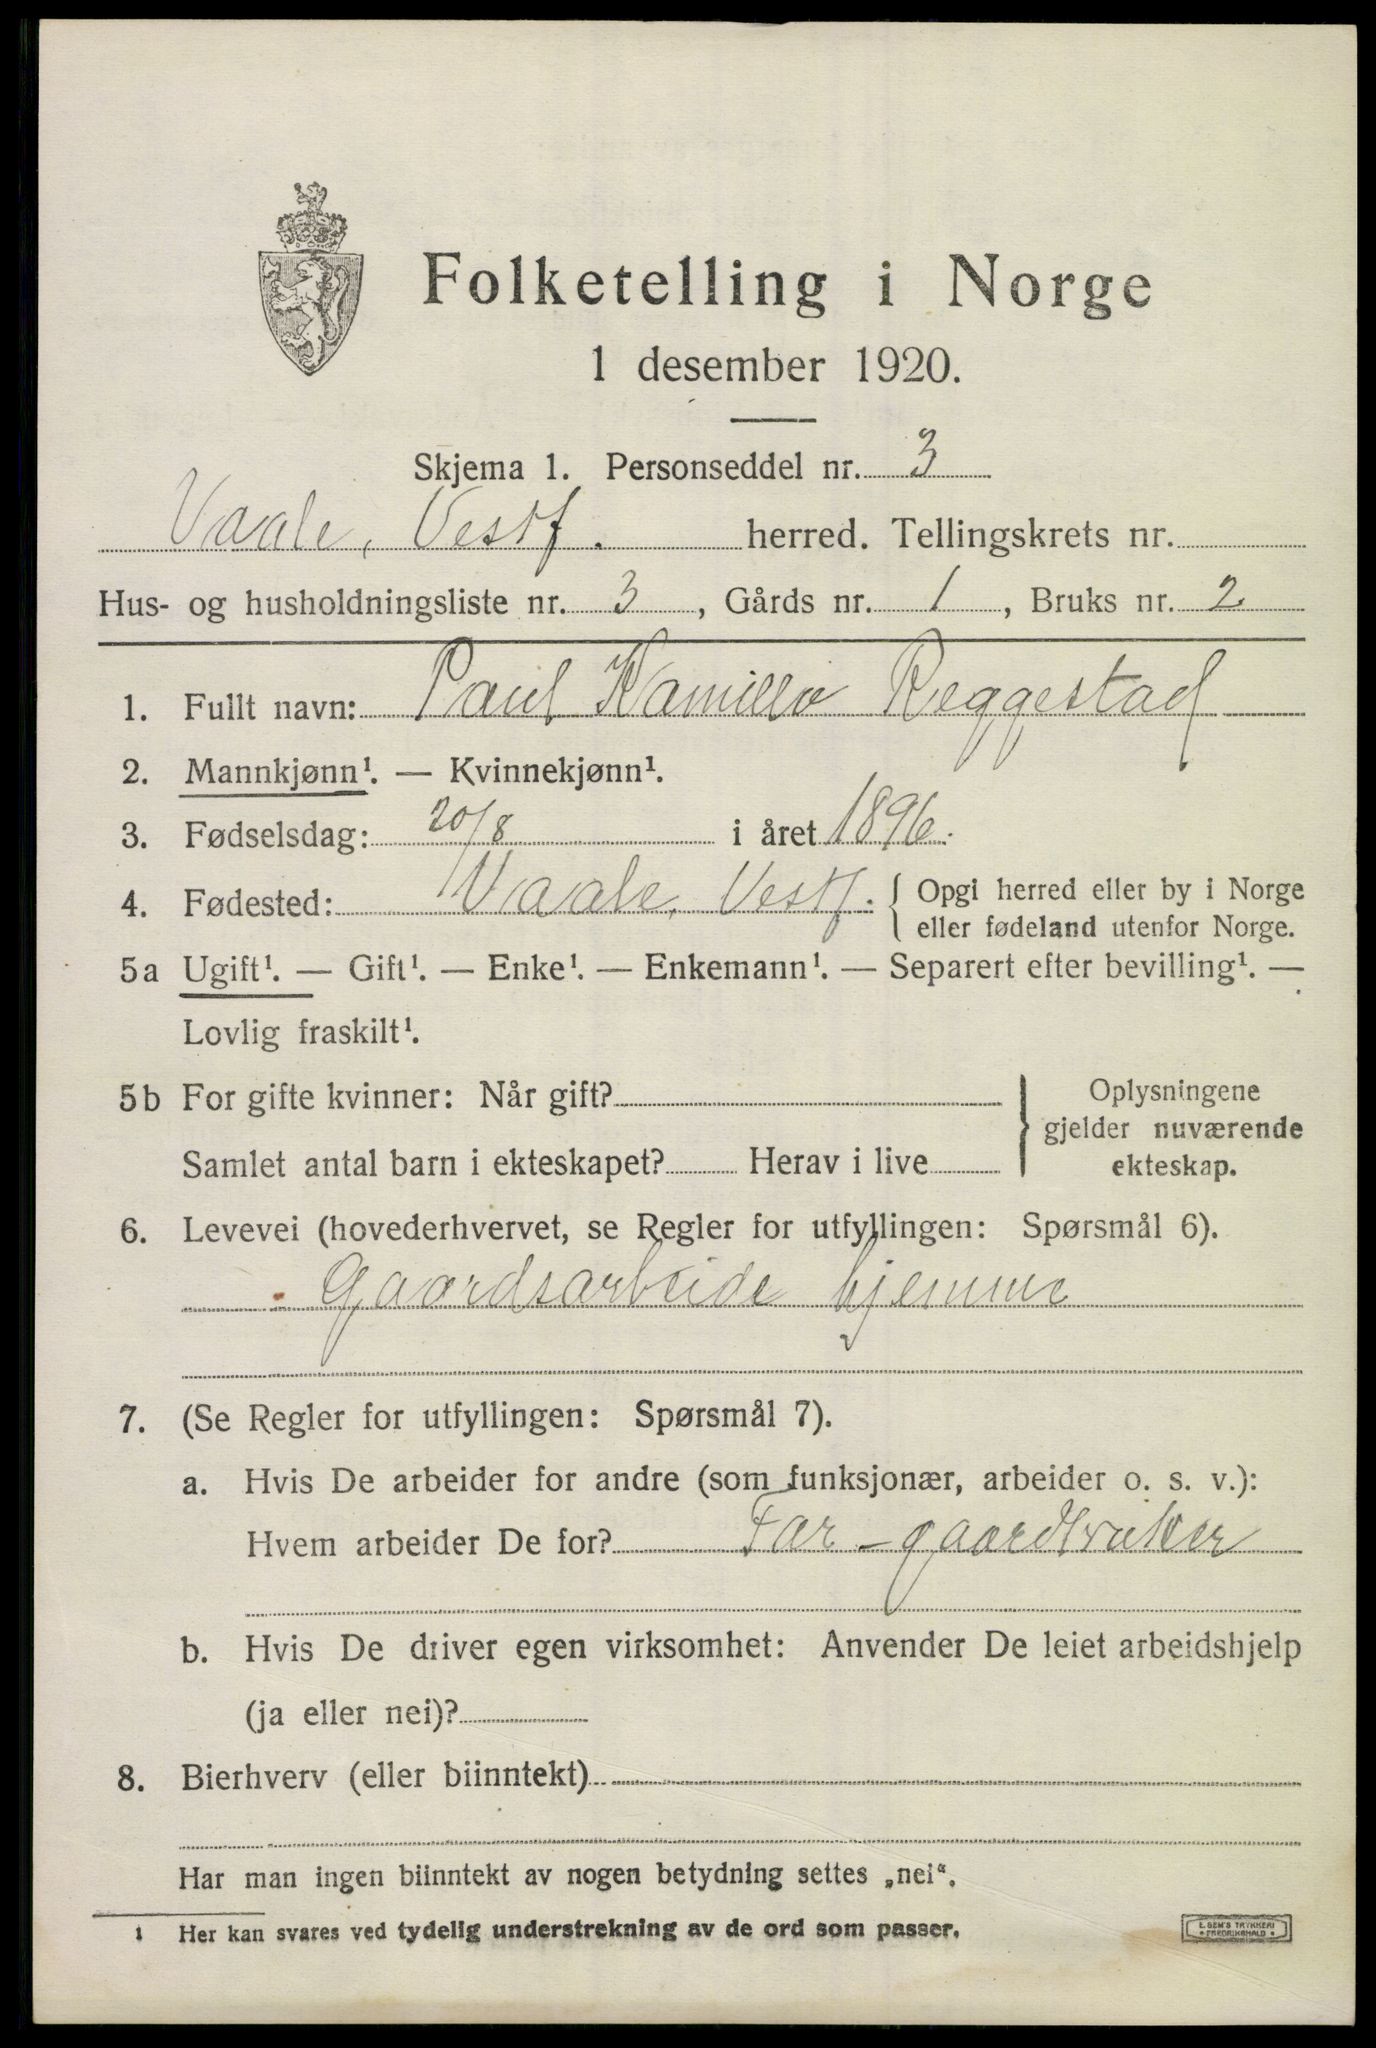 Folketelling i Norge
1 desember 1920.
Skjema 1. Personseddel nr. 3
Vaale, Vestf. herred. Tellingskrets nr.
Hus- og husholdningsliste nr. 3, Gårds nr. 1, Bruks nr. 2
1. Fullt navn: Paul Kamillo Reggestad
2. Mannkjønn¹. — Kvinnekjønn¹.
3. Fødselsdag: 20/8 i året 1896.
4. Fødested: Vaale, Vestf. { Opgi herred eller by i Norge
eller fødeland utenfor Norge.
5a Ugift¹. — Gift¹. — Enke¹. — Enkemann¹. — Separert efter bevilling¹. —
Lovlig fraskilt¹.
5b For gifte kvinner: Når gift?
Samlet antal barn i ekteskapet? Herav i live
} Oplysningene
gjelder nuværende
ekteskap.
6. Levevei (hovederhvervet, se Regler for utfyllingen: Spørsmål 6).
Gaardsarbeide hjemme
7. (Se Regler for utfyllingen: Spørsmål 7).
a. Hvis De arbeider for andre (som funksjonær, arbeider o. s. v.):
Hvem arbeider De for? Far - gaardbruker
b. Hvis De driver egen virksomhet: Anvender De leiet arbeidshjelp
(ja eller nei)?
8. Bierhverv (eller biinntekt)
Har man ingen biinntekt av nogen betydning settes „nei“.
1 Her kan svares ved tydelig understrekning av de ord som passer.
E. SEM'S TRYKKERI
FREDRIKSHALD